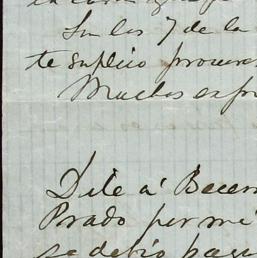 Son las 7 de la
te suplico procures
Muchas expre
Dile á Becerr
Prado por mi
se debió pagar